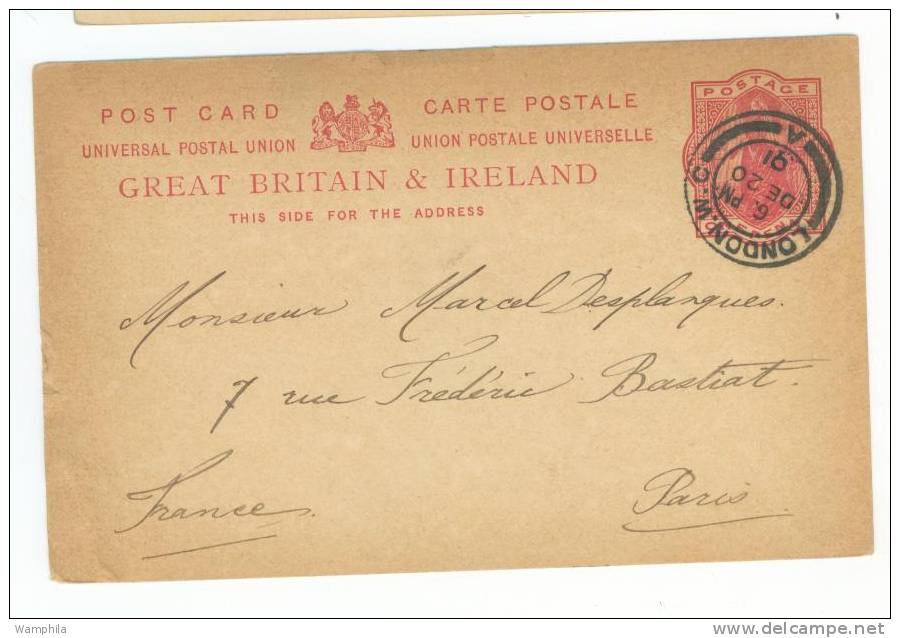 POST CARD CARTE POSTALE
UNIVERSAL POSTAL UNION UNION POSTALE UNIVERSELLE
GREAT BRITAIN & IRELAND
THIS SIDE FOR THE ADDRESS
POSTAGE
LONDON.W.C.
6. PM
DE 20
91
A
Monsieur Marcel Desplanques.
7 rue Frédéric Bastiat.
France. Paris.
Wamphila
www.delcampe.net